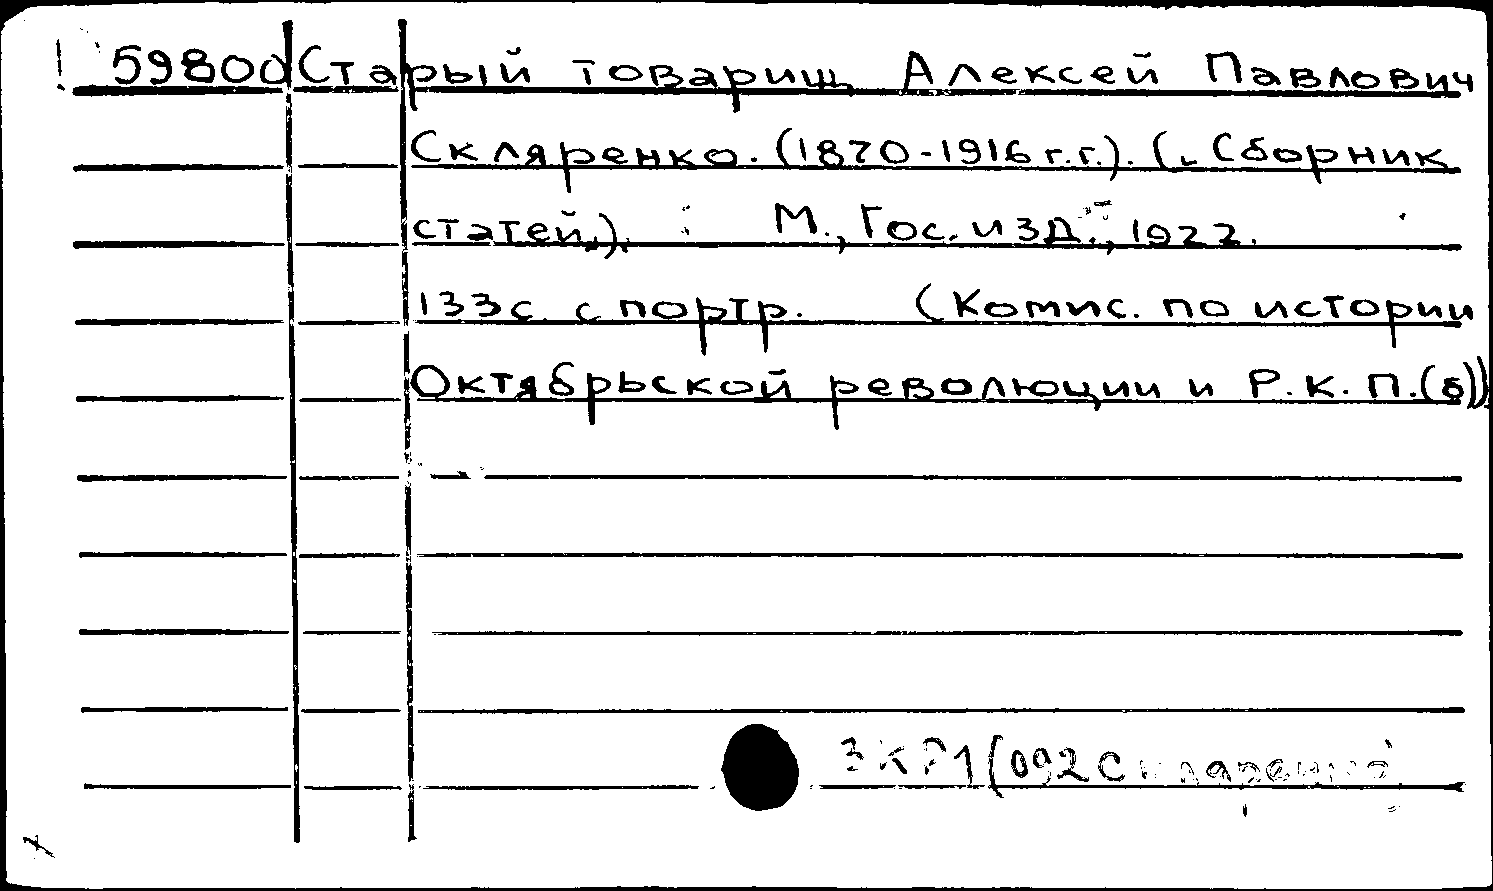 59800 Старый товарищ Алексей Павлович
Скляренко. (1870-1916 г.г.). (Сборник
статей.). М., Гос. изд., 1922.
133 с. с портр. (Комис. по истории
Октябрьской революции и Р.К.П.(б))
3КР1(092 Скляренко)